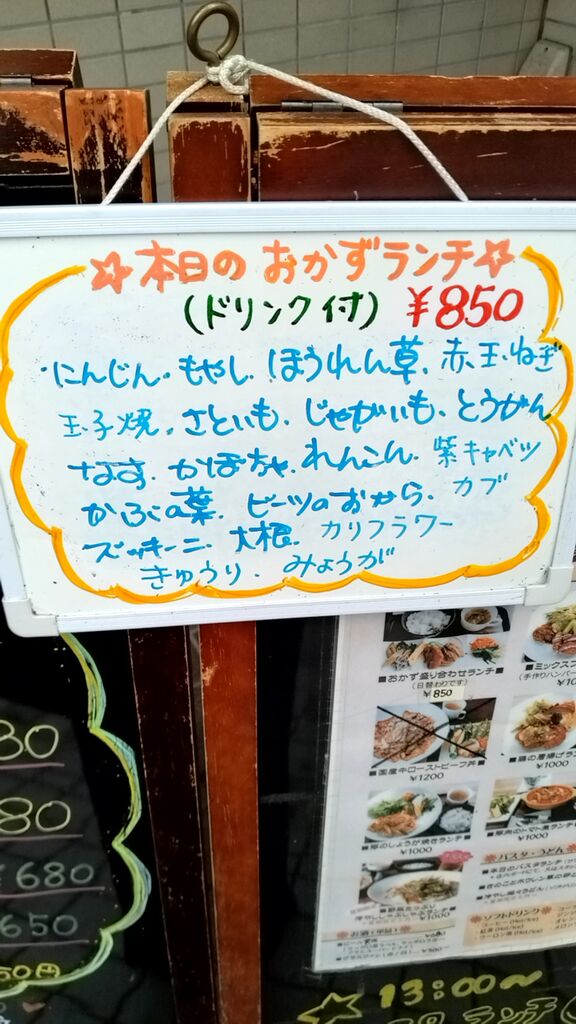 ☆本日の おかずランチ☆
(ドリンク付) ¥850
・にんじん・もやし・ほうれん草・赤玉ねぎ
玉子焼・さといも・じゃがいも・とうがん
なす・かぼちゃ・れんこん・紫キャベツ
かぶの葉・ビーツのおから・カブ
ズッキーニ・大根・カリフラワー
きゅうり・みょうが
80
80
680
650
50円
■おかず盛り合わせランチ
(日替わりです)
¥850
■国産牛ローストビーフ丼
¥1200
¥1000
¥1000
¥1000
■ミックス
(手作りハンバー
¥1000
¥1000
パスタ・うどん
ソフトドリンク
13:00～
ランチ